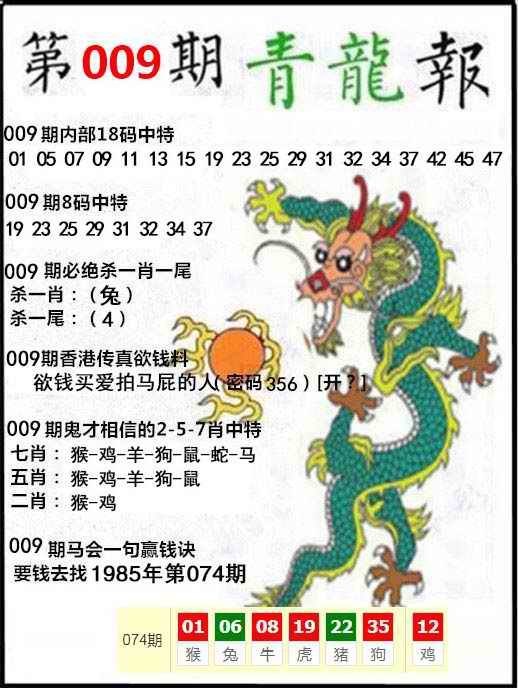 第009期青龍報
009期内部18码中特
01 05 07 09 11 13 15 19 23 25 29 31 32 34 37 42 45 47
009期8码中特
19 23 25 29 31 32 34 37
009 期必绝杀一肖一尾
杀一肖：（兔）
杀一尾：（4）
009期香港传真欲钱料
欲钱买爱拍马屁的人（密码356）[开？]
009期鬼才相信的2-5-7肖中特
七肖：猴-鸡-羊-狗-鼠-蛇-马
五肖：猴-鸡-羊-狗-鼠
二肖：猴-鸡
009 期马会一句赢钱诀
要钱去找1985年第074期
074期 01 06 08 19 22 35 12
猴 兔 牛 虎 猪 狗 鸡